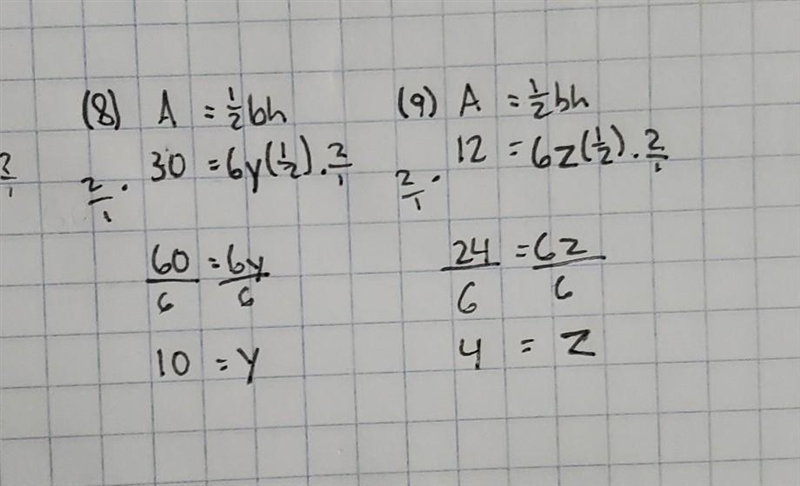 (8) A = 1/2 bh
2/1 · 30 = 6y(1/2) · 2/1
60/6 = 6y/6
10 = y
(9) A = 1/2 bh
2/1 · 12 = 6z(1/2) · 2/1
24/6 = 6z/6
4 = z
2/1